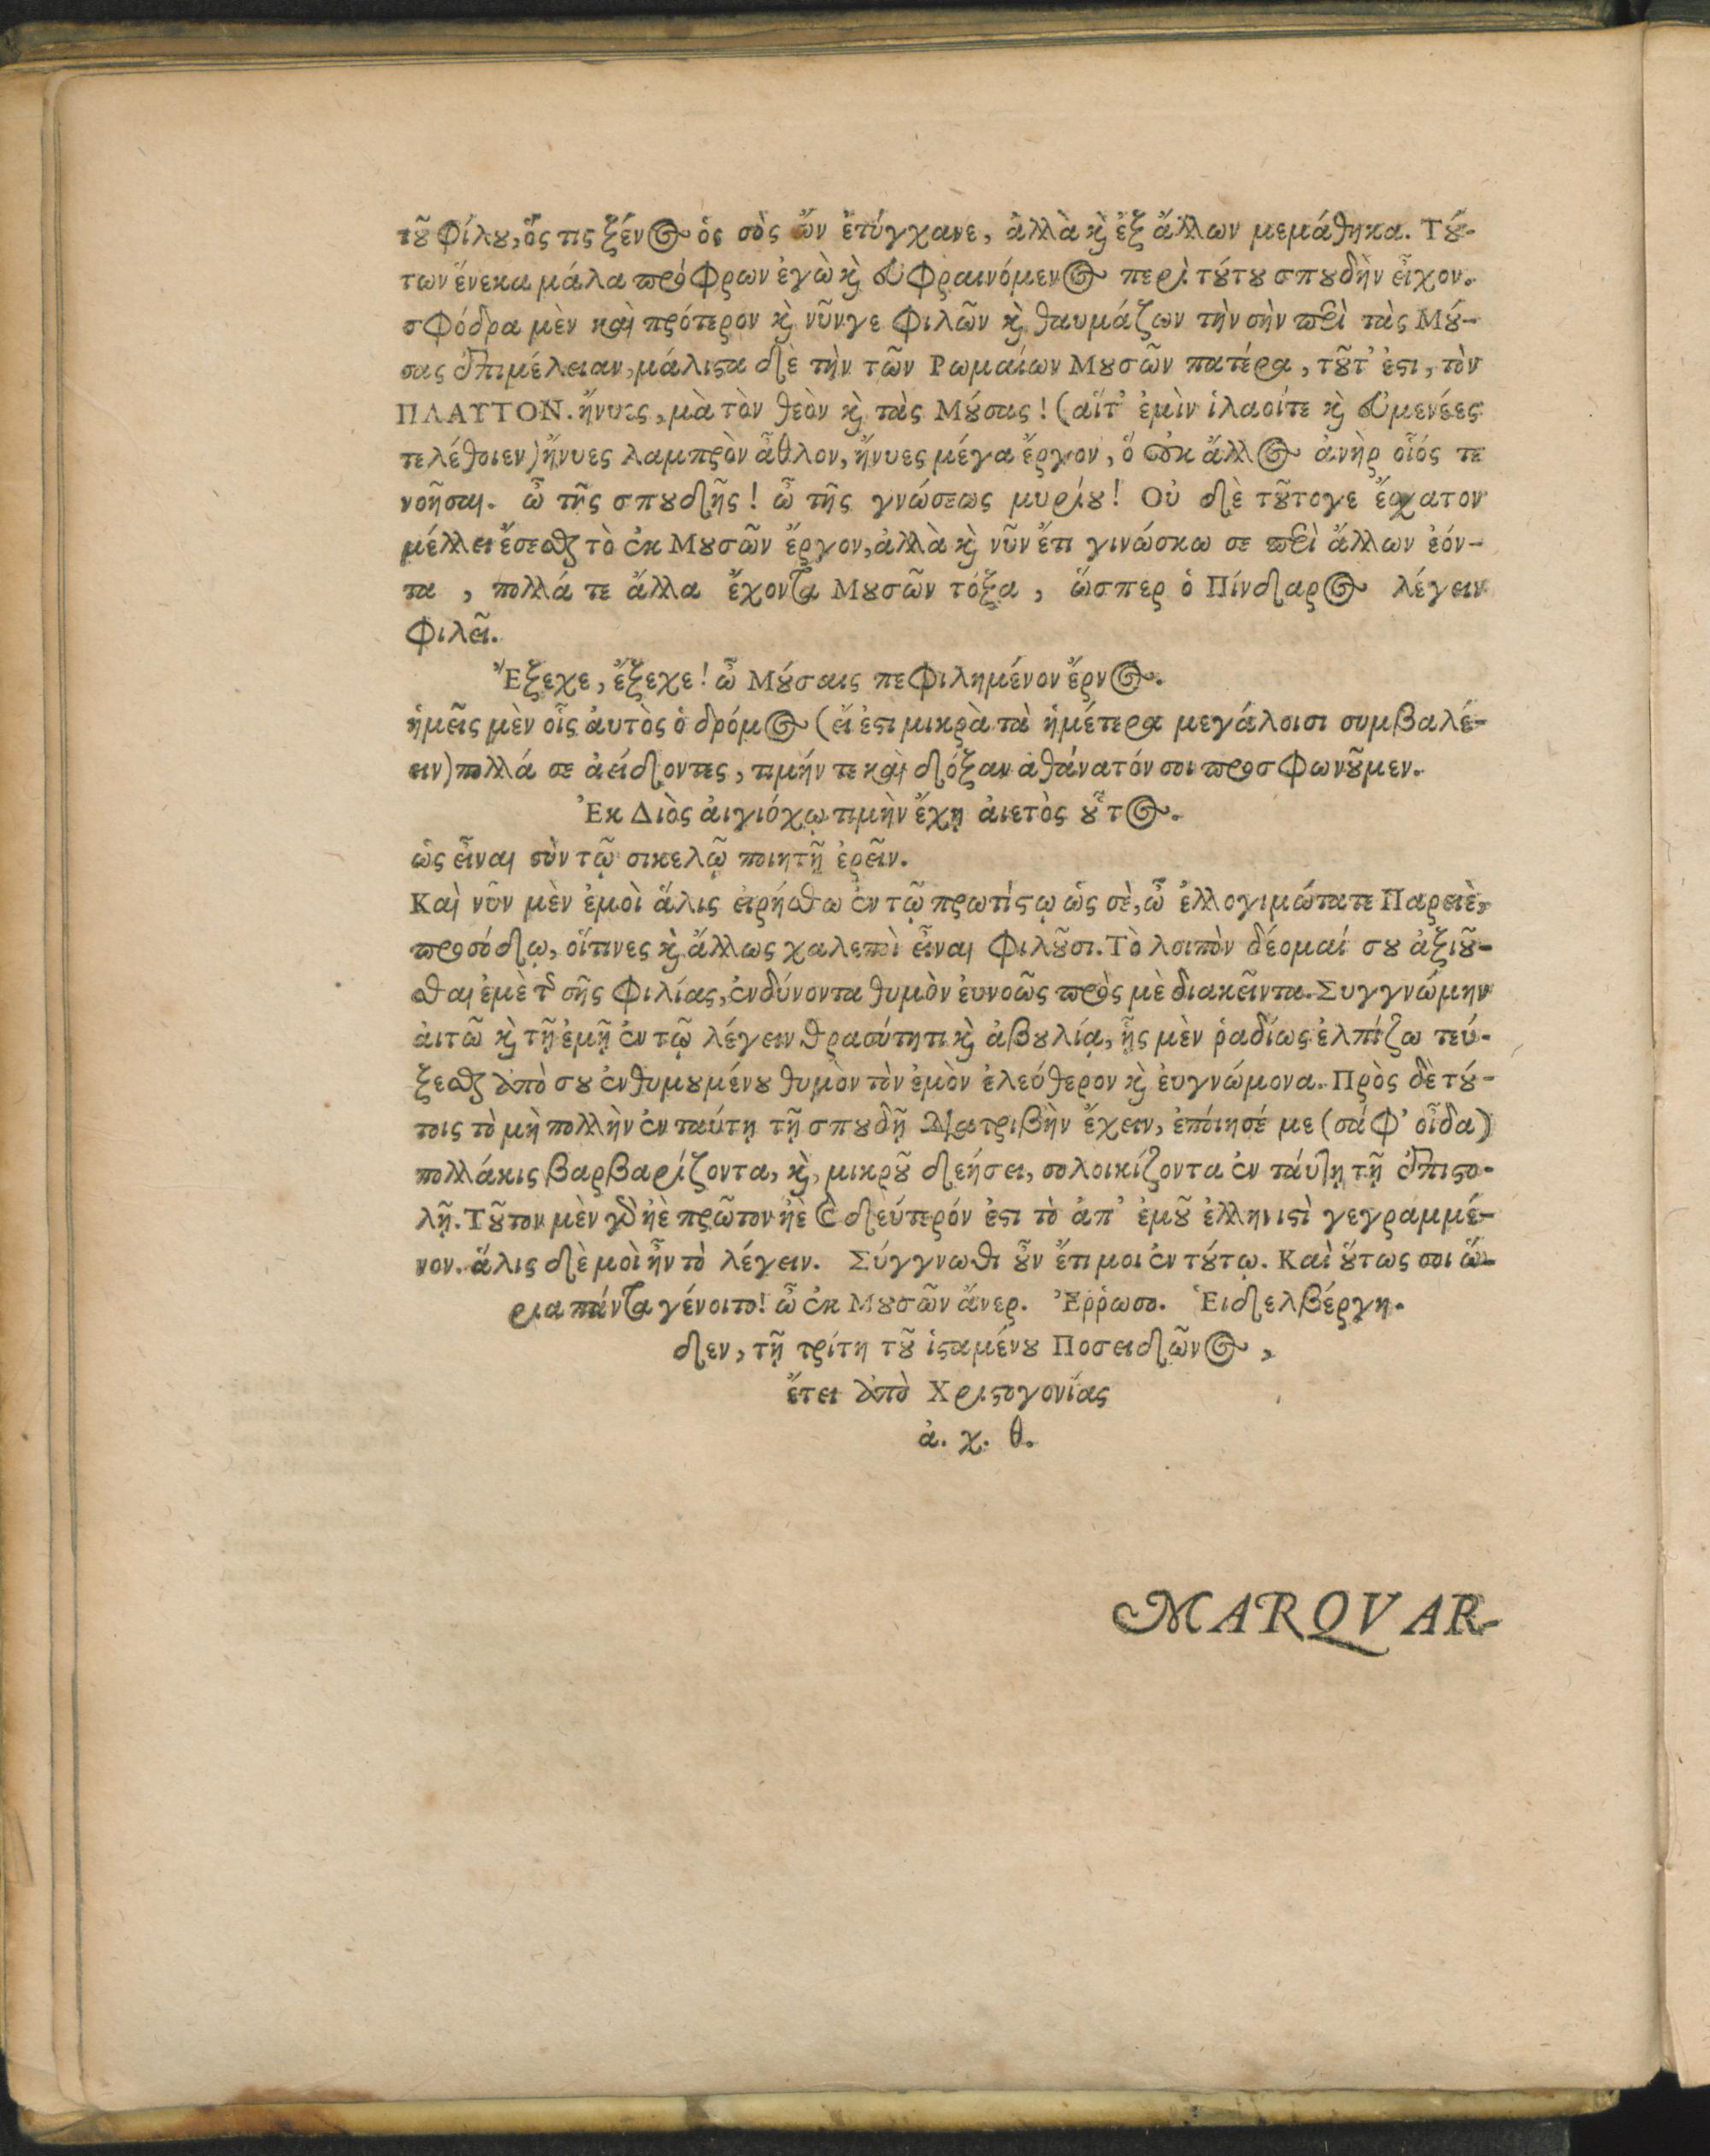 τȣ͂ φίλȣ, ὅς τις ξένος ὁς σὸς ὤν ἐτύγχανε, ἀλλὰ ϗ̀ ἐξ ἄλλων μεμάθηκα. Τȣ́-
των ἕνεκα μάλα πρόφρων ἐγὼ ϗ̀ ἐυφραινόμενος περὶ τȣ́τȣ σπȣδὴν εἶχον.
σφόδρα μὲν καὶ πρότερον ϗ̀ νῦνγε φιλῶν ϗ̀ θαυμάζων τὴν σὴν περὶ τὰς Μȣ́-
σας ἐπιμέλειαν, μάλιϛα δὲ τὴν τῶν Ρωμαίων Μȣσῶν πατέρα, τȣ͂τ' ἐϛι, τὸν
ΠΛΑΥΤΟΝ. ἤνυες, μὰ τὸν θεὸν ϗ̀ τὰς Μȣ́σας! (αἵτ' ἐμὶν ἱλαοίτε ϗ̀ ἐυμενέες
τελέθοιεν) ἤνυες λαμπρὸν ἆθλον, ἤνυες μέγα ἔργον, ὅ οὐκ ἄλλος ἀνὴρ οἷός τε
νοῆσαι. ὦ τῆς σπȣδῆς! ὦ τῆς γνώσεως μυρίȣ! Οὐ δὲ τȣ͂τογε ἔσχατον
μέλλει ἔσεσθαι τὸ ἐκ Μȣσῶν ἔργον, ἀλλὰ ϗ̀ νῦν ἔτι γινώσκω σε περὶ ἄλλων ἐόν-
τα, πολλά τε ἄλλα ἔχοντα Μȣσῶν τόξα, ὥσπερ ὁ Πίνδαρος λέγειν
φιλεῖ.
Ἔξεχε, ἔξεχε! ὦ Μȣ́σαις πεφιλημένον ἔρνος.
ἡμεῖς μὲν οἷς ἀυτὸς ὁ δρόμος (εἴ ἐϛι μικρὰ τὰ ἡμέτερα μεγάλοισι συμβαλέ-
ειν) πολλά σε ἀείδοντες, τιμήν τε καὶ δόξαν ἀθάνατόν σοι προσφωνȣ͂μεν.
Ἐκ Διὸς ἀιγιόχῳ τιμὴν ἔχῃ ἀιετὸς ȣ̓͂τος.
ὡς εἶναι σὺν τῷ σικελῷ ποιητῇ ἐρεῖν.
Καὶ νῦν μὲν ἐμοὶ ἅλις ἐιρήσθω ἐν τῷ πρωτίϛῳ ὡς σὲ, ὦ ἐλλογιμώτατε Παρειὲ,
προσόδῳ, οἵτινες ϗ̀ ἄλλως χαλεποὶ εἶναι φιλȣ͂σι. Τὸ λοιπὸν δέομαί σȣ ἀξιȣ͂-
σθαι ἐμὲ τῆς σῆς φιλίας, ἐνδύνοντα θυμὸν ἐυνοῶς πρὸς μὲ διακεῖντα. Συγγνώμην
ἀιτῶ ϗ̀ τῇ ἐμῇ ἐν τῷ λέγειν θρασύτητι ϗ̀ ἀβȣλίᾳ, ἧς μὲν ῥαδίως ἐλπίζω τεύ-
ξεσθαι ἀπὸ σȣ ἐνθυμȣμένȣ θυμὸν τὸν ἐμὸν ἐλεόθερον ϗ̀ ἐυγνώμονα. Πρὸς δὲ τȣ́-
τοις τὸ μὴ πολλὴν ἐν ταύτῃ τῇ σπȣδῇ διατριβὴν ἔχειν, ἐπόιησέ με (σάφ' οἶδα)
πολλάκις βαρβαρίζοντα, ϗ̀, μικρȣ͂ δεήσει, σολοικίζοντα ἐν τάυτῃ τῇ ἐπιϛο-
λῇ. Τȣ͂τον μὲν γὰρ ἠὲ πρῶτον ἠὲ τὸ δεύτερόν ἐϛι τὸ ἀπ' ἐμȣ͂ ἑλληνιϛὶ γεγραμμέ-
νον. ἅλις δὲ μοὶ ἦν τὸ λέγειν. Σύγγνωθι ȣ̓͂ν ἔτι μοι ἐν τȣ́τῳ. Καὶ ȣ̔́τως σοι ὥ-
ρια πάντα γένοιτο! ὦ ἐκ Μȣσῶν ἄνερ. Ἔῤῥωσο. Ἑιδελβέργη-
δεν, τῇ τρίτη τȣ͂ ἱϛαμένȣ Ποσειδῶνος,
ἔτει ἀπὸ Χριϛογονίας
ἀ. χ. θ.
MARQVAR-